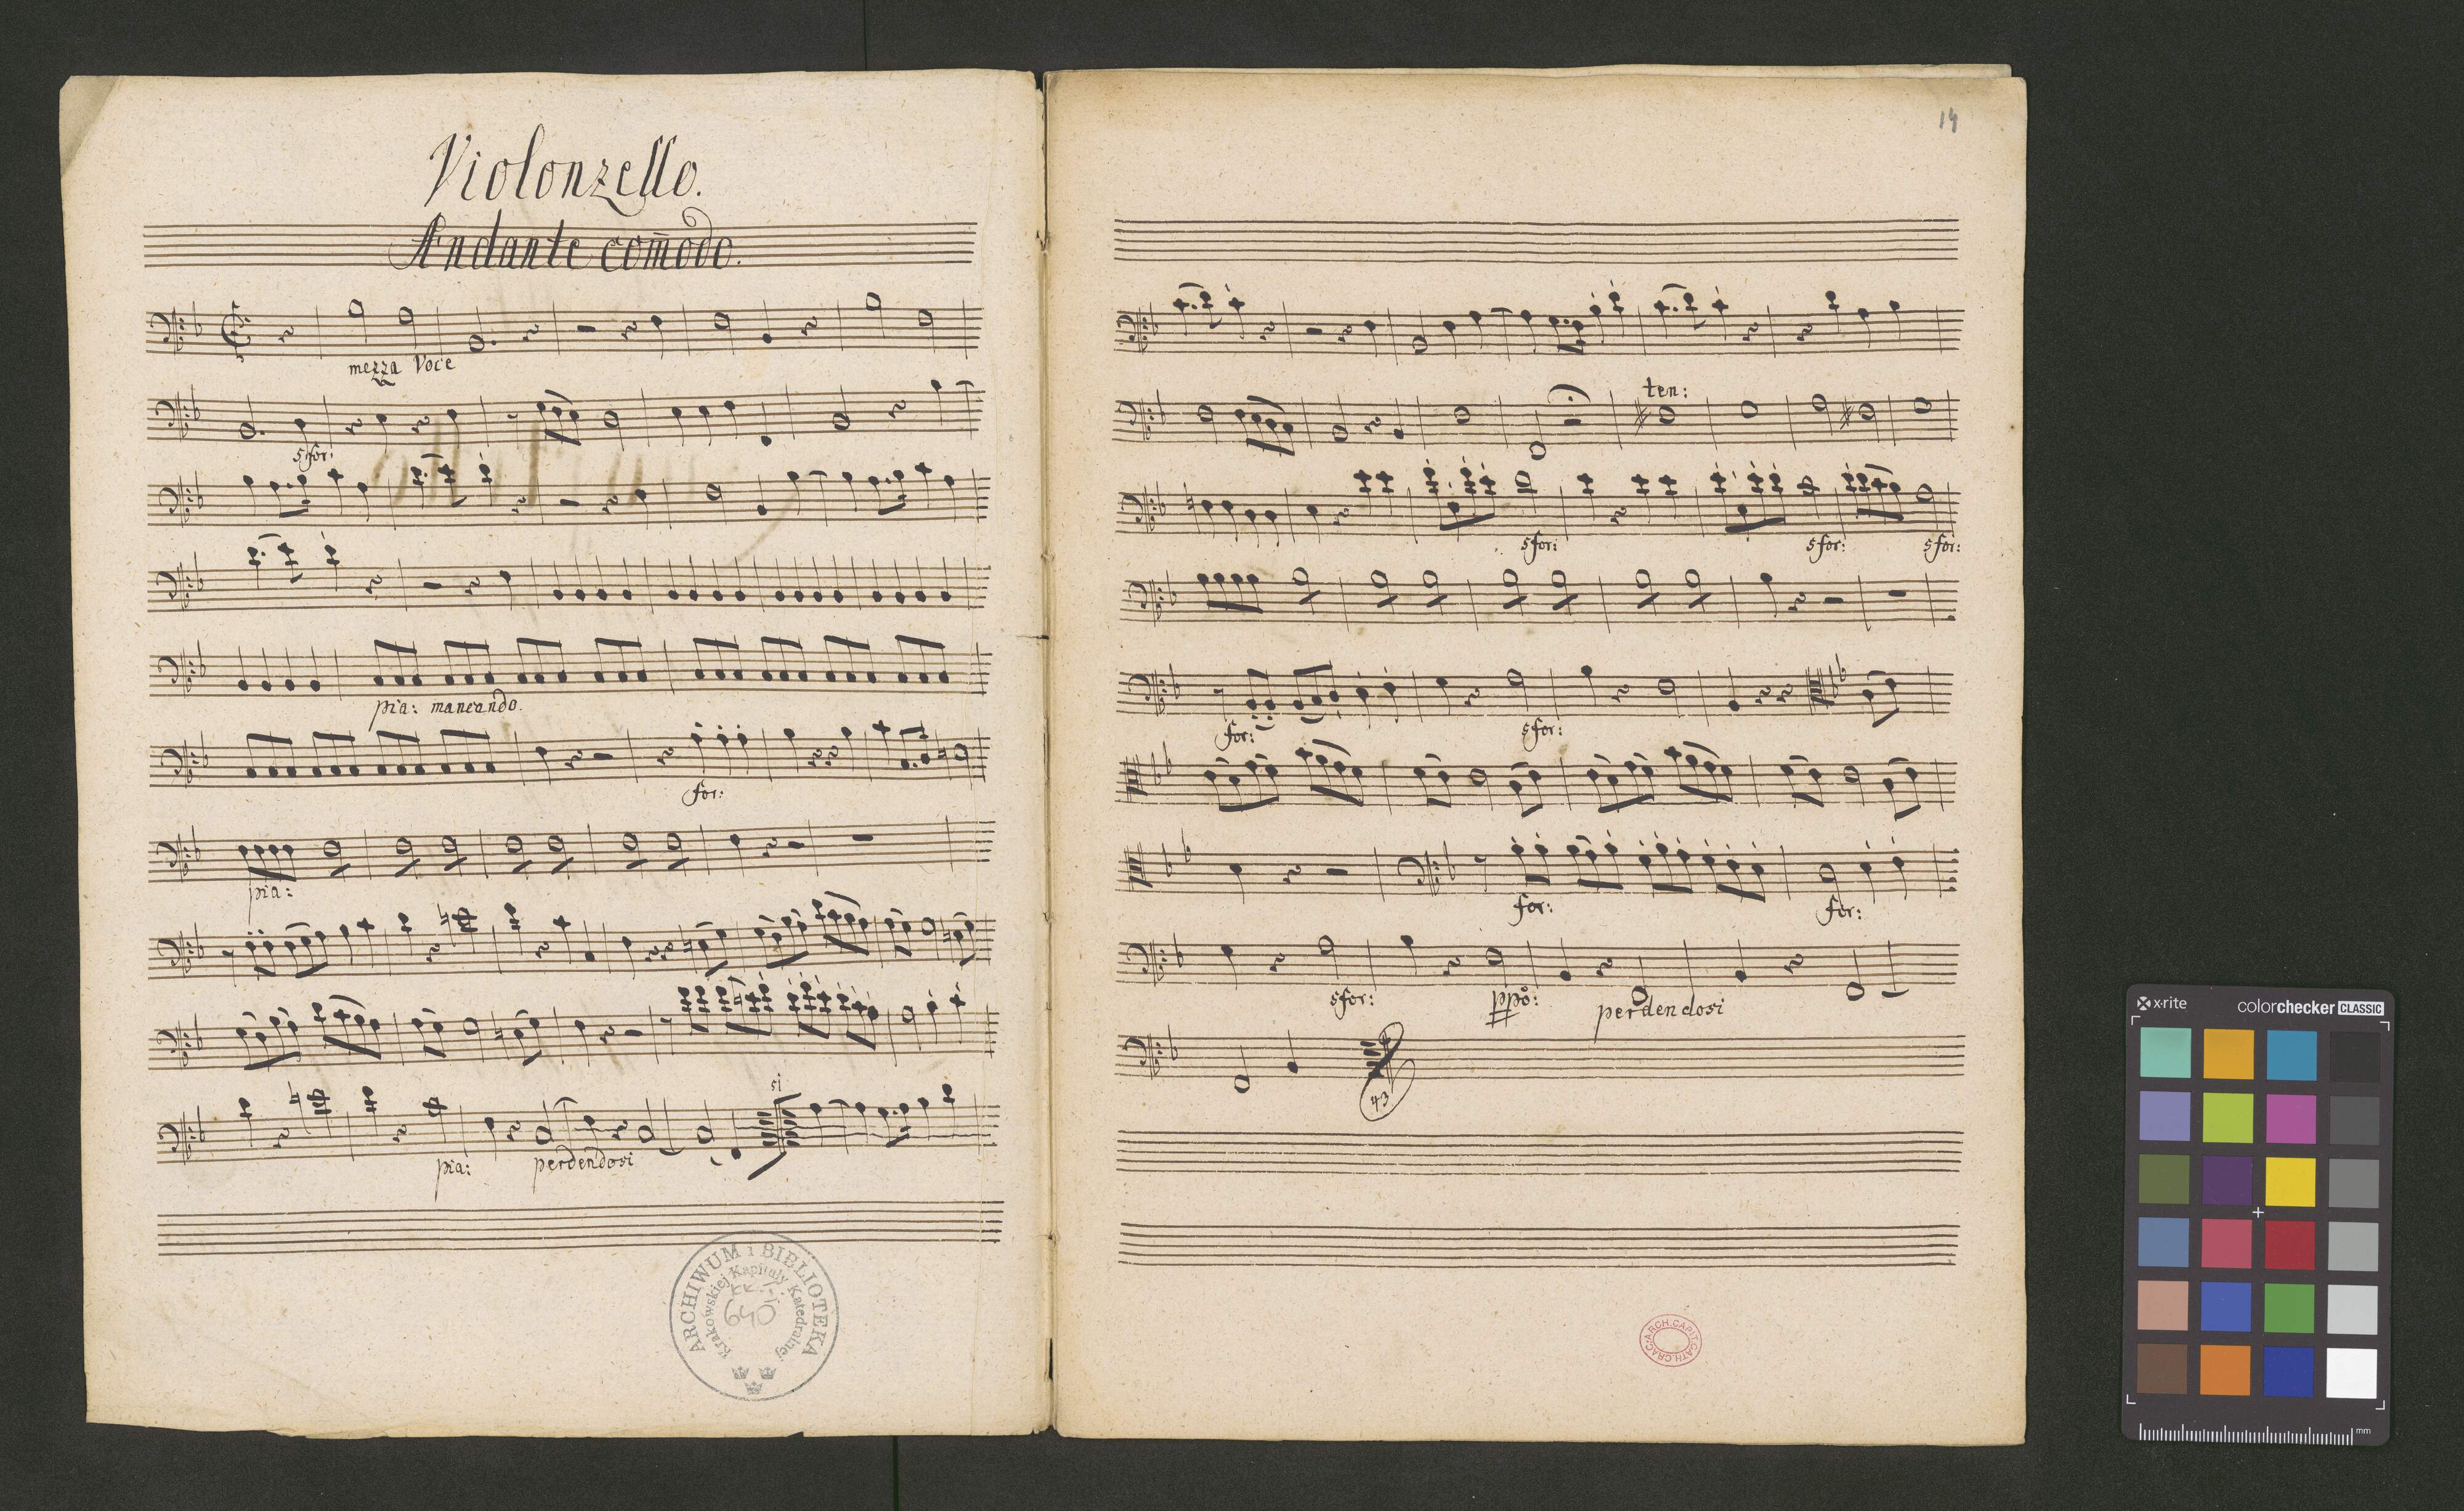 Violonzello.
Andante com̄odo.
mezza Voce
sfor:
pia: mancando.
for:
pia:
si
pia: perdendosi
ARCHIWUM i BIBLIOTEKA
Krakowskiej Kapituły Katedralnej
14
ten:
sfor: sfor: sfor:
for: sfor:
for: for:
sfor: ppo: perdendosi
43
ARCH.CAPIT.CATH.CRAC.
x·rite colorchecker CLASSIC
mm